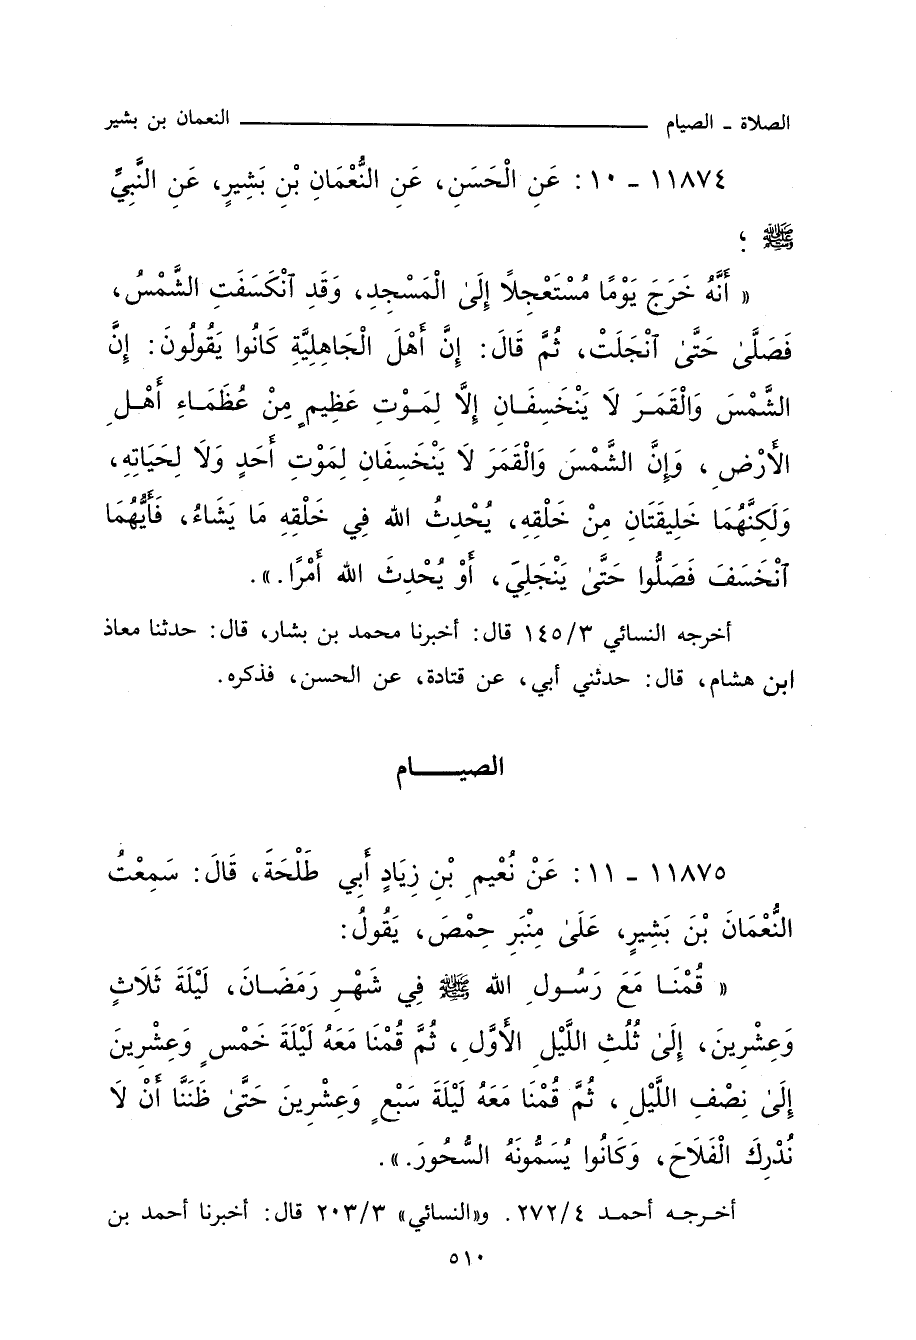 الصلاة ـ الصيام ــــــــــــــــــــــــــــــــ النعمان بن بشير
١١٨٧٤ ـ ١٠ : عَنِ الْحَسَنِ، عَنِ النُّعْمَانِ بْنِ بَشِيرٍ، عَنِ النَّبِيِّ
ﷺ ؛
« أَنَّهُ خَرَجَ يَوْمًا مُسْتَعْجِلًا إِلَىٰ الْمَسْجِدِ، وَقَدِ ٱنْكَسَفَتِ الشَّمْسُ،
فَصَلَّىٰ حَتَّىٰ ٱنْجَلَتْ، ثُمَّ قَالَ: إِنَّ أَهْلَ الْجَاهِلِيَّةِ كَانُوا يَقُولُونَ: إِنَّ
الشَّمْسَ وَالْقَمَرَ لَا يَنْخَسِفَانِ إِلَّا لِمَوْتِ عَظِيمٍ مِنْ عُظَمَاءِ أَهْلِ
الأَرْضِ، وَإِنَّ الشَّمْسَ وَالْقَمَرَ لَا يَنْخَسِفَانِ لِمَوْتِ أَحَدٍ وَلَا لِحَيَاتِهِ،
وَلَكِنَّهُمَا خَلِيقَتَانِ مِنْ خَلْقِهِ، يُحْدِثُ الله فِي خَلْقِهِ مَا يَشَاءُ، فَأَيُّهُمَا
ٱنْخَسَفَ فَصَلُّوا حَتَّىٰ يَنْجَلِيَ، أَوْ يُحْدِثَ الله أَمْرًا.».
أخرجه النسائي ١٤٥/٣ قال: أخبرنا محمد بن بشار، قال: حدثنا معاذ
ابن هشام، قال: حدثني أبي، عن قتادة، عن الحسن، فذكره.
الصيـــــام
١١٨٧٥ ـ ١١ : عَنْ نُعْيمِ بْنِ زِيَادٍ أَبِي طَلْحَةَ، قَالَ: سَمِعْتُ
النُّعْمَانَ بْنَ بَشِيرٍ، عَلَىٰ مِنْبَرِ حِمْصَ، يَقُولُ:
« قُمْنَا مَعَ رَسُولِ الله ﷺ فِي شَهْرِ رَمَضَانَ، لَيْلَةَ ثَلَاثٍ
وَعِشْرِينَ، إِلَىٰ ثُلُثِ اللَّيْلِ الأَوَّلِ، ثُمَّ قُمْنَا مَعَهُ لَيْلَةَ خَمْسٍ وَعِشْرِينَ
إِلَىٰ نِصْفِ اللَّيْلِ، ثُمَّ قُمْنَا مَعَهُ لَيْلَةَ سَبْعٍ وَعِشْرِينَ حَتَّىٰ ظَنَنَّا أَنْ لَا
نُدْرِكَ الْفَلَاحَ، وَكَانُوا يُسَمُّونَهُ السُّحُورَ.».
أخرجه أحمد ٢٧٢/٤. و«النسائي» ٢٠٣/٣ قال: أخبرنا أحمد بن
٥١٠